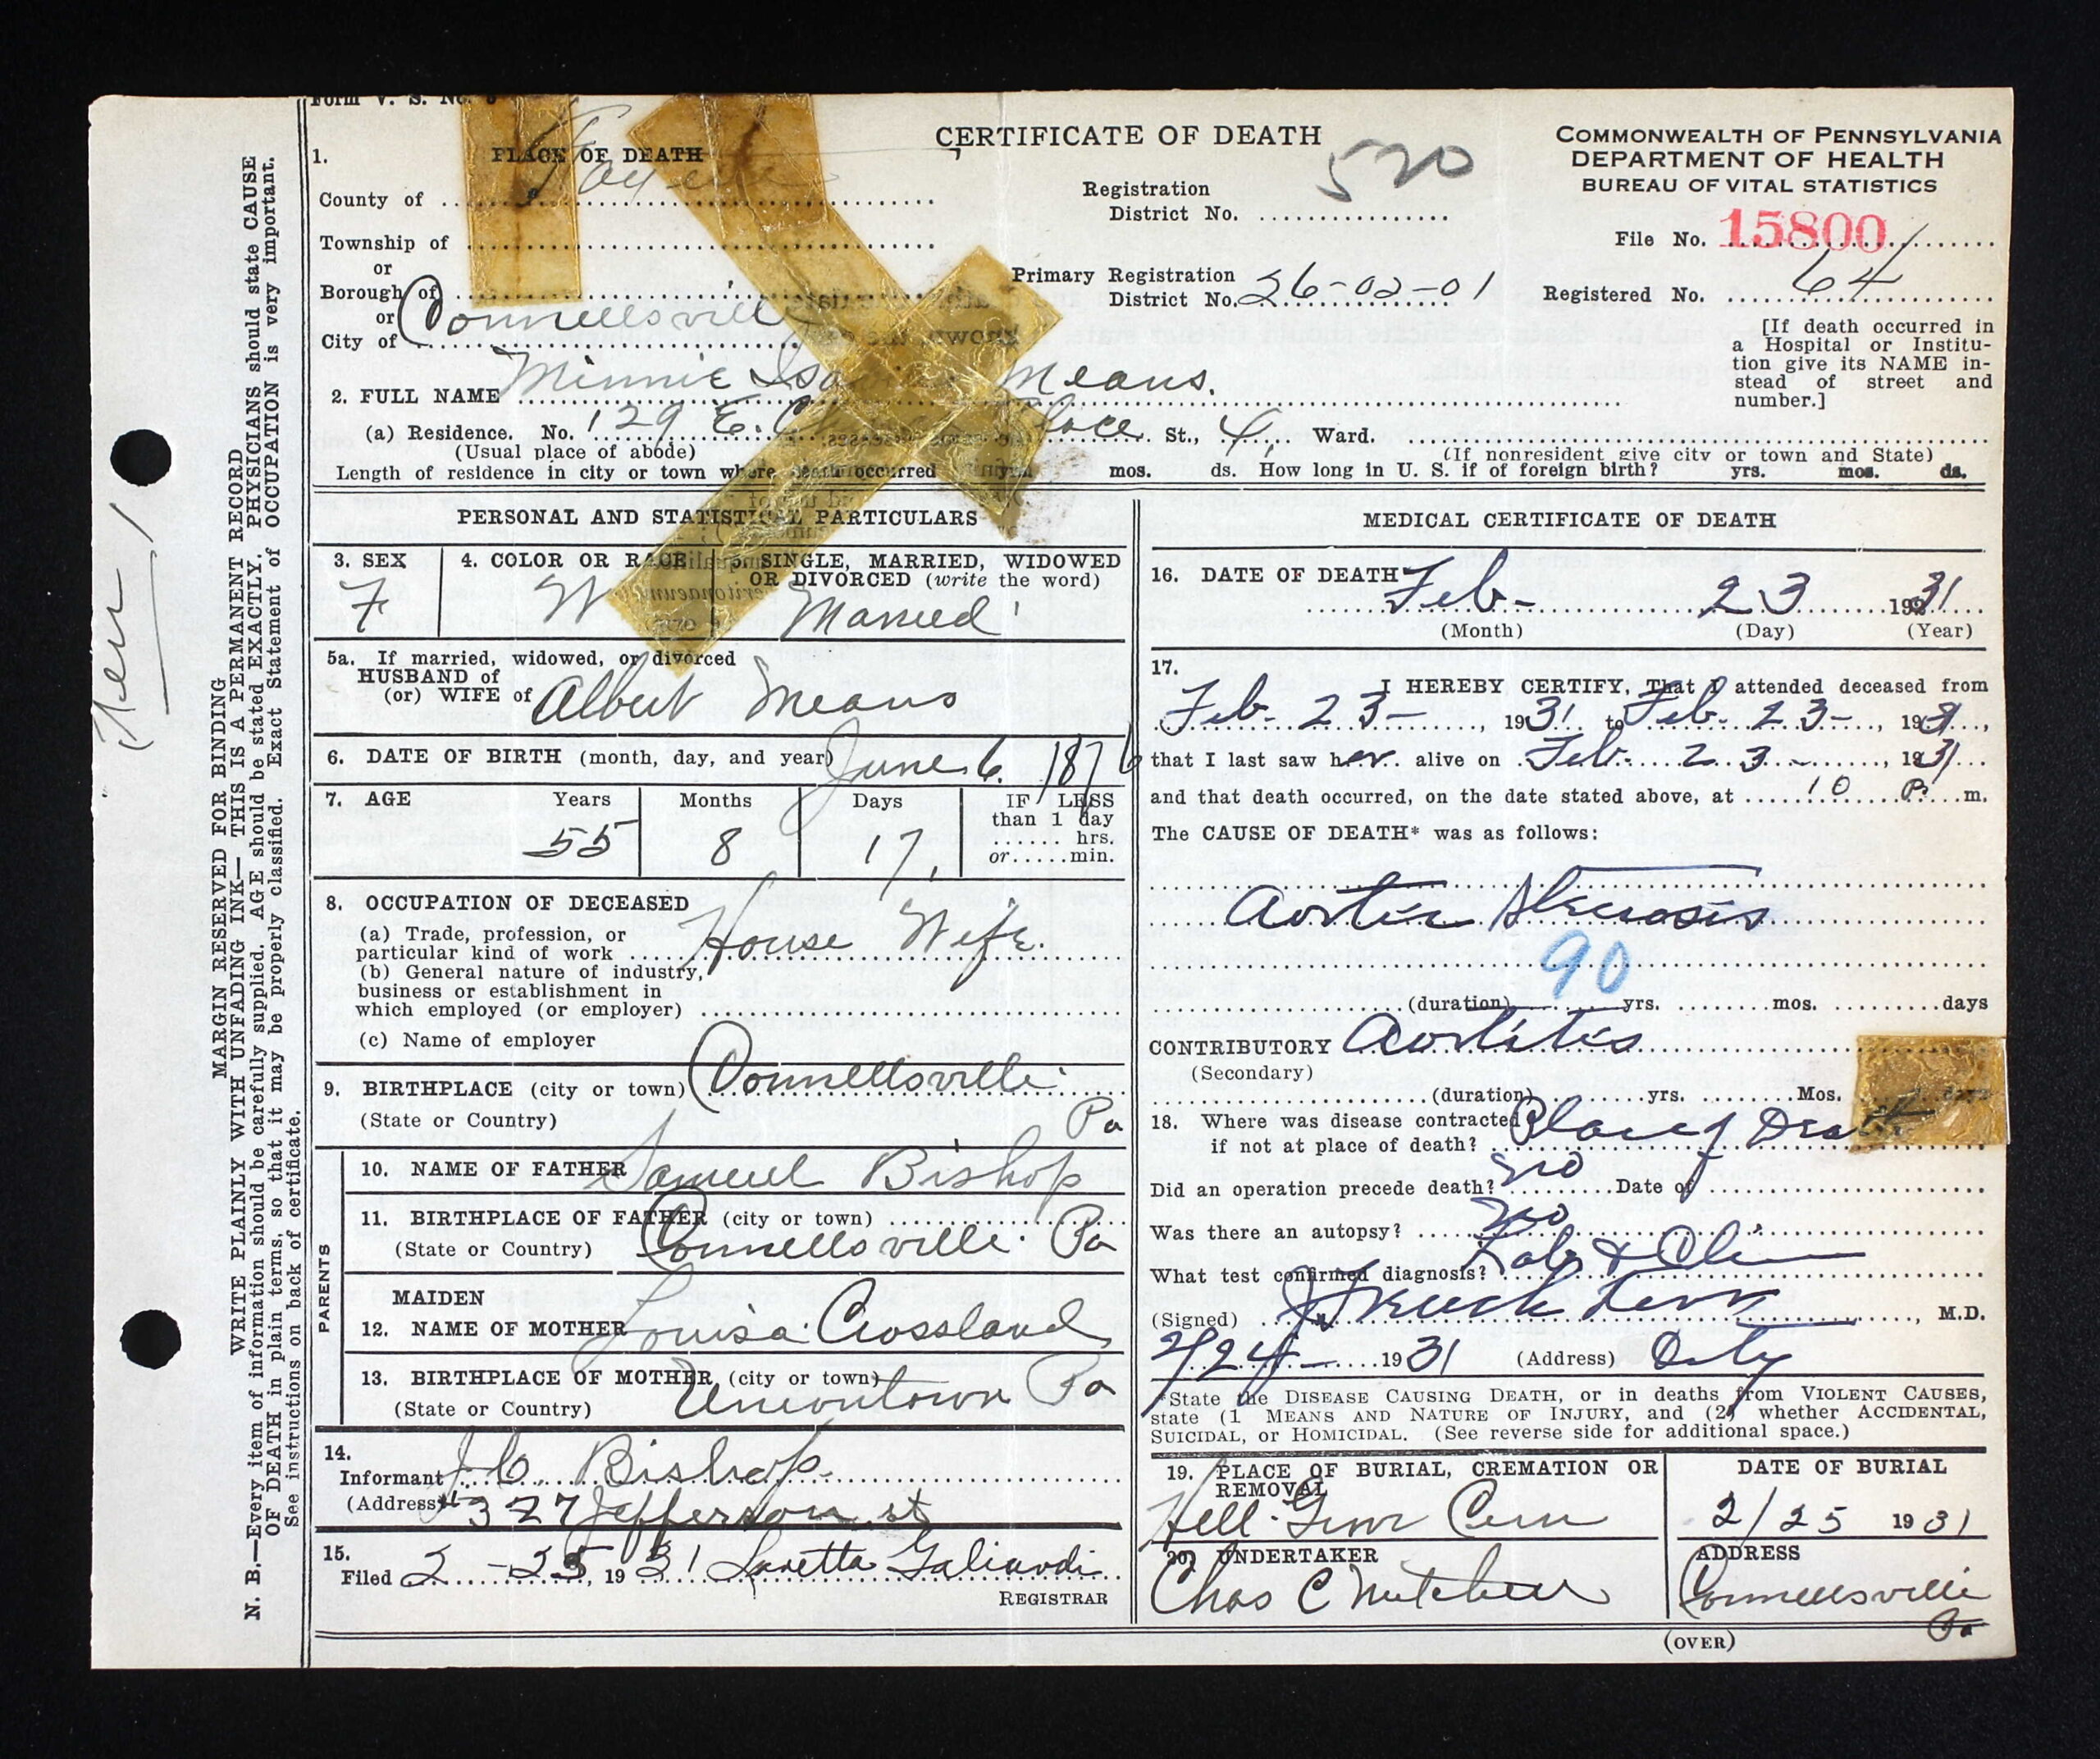 Form V. S. No. 5
CERTIFICATE OF DEATH
COMMONWEALTH OF PENNSYLVANIA
DEPARTMENT OF HEALTH
BUREAU OF VITAL STATISTICS
1. PLACE OF DEATH
County of Fayette
Township of
or
Borough of
or
City of Connellsville
Registration
District No. 520
Primary Registration
District No. 26-02-01
File No. 15800
Registered No. 64
[If death occurred in
a Hospital or Institu-
tion give its NAME in-
stead of street and
number.]
2. FULL NAME Minnie Means.
(a) Residence. No. 129 E. Place St., 4, Ward.
(Usual place of abode)
(If nonresident give city or town and State)
Length of residence in city or town where death occurred yrs. mos. ds. How long in U. S. if of foreign birth? yrs. mos. ds.
PERSONAL AND STATISTICAL PARTICULARS
3. SEX
F
4. COLOR OR RACE
W
5. SINGLE, MARRIED, WIDOWED
OR DIVORCED (write the word)
Married
5a. If married, widowed, or divorced
HUSBAND of
(or) WIFE of Albert Means
6. DATE OF BIRTH (month, day, and year) June 6. 1876
7. AGE Years Months Days IF LESS
than 1 day
55 8 17. ...... hrs.
or.....min.
8. OCCUPATION OF DECEASED
(a) Trade, profession, or
particular kind of work House Wife.
(b) General nature of industry,
business or establishment in
which employed (or employer)
(c) Name of employer
9. BIRTHPLACE (city or town) Connellsville
(State or Country) Pa
PARENTS
10. NAME OF FATHER Samuel Bishop
11. BIRTHPLACE OF FATHER (city or town)
(State or Country) Connellsville. Pa
MAIDEN
12. NAME OF MOTHER Louisa Crossland
13. BIRTHPLACE OF MOTHER (city or town)
(State or Country) Uniontown Pa
14.
Informant Bishop
(Address) 327 Jefferson st
15.
Filed 2-25, 1931 Loretta Galiardi
REGISTRAR
MEDICAL CERTIFICATE OF DEATH
16. DATE OF DEATH
Feb- 23 1931
(Month) (Day) (Year)
17.
I HEREBY CERTIFY, That I attended deceased from
Feb- 23-, 1931 to Feb- 23-, 1931,
that I last saw her alive on Feb. 23-, 1931
and that death occurred, on the date stated above, at 10 P. m.
The CAUSE OF DEATH* was as follows:
Aortic Stenosis
90
(duration) yrs. mos. days
CONTRIBUTORY Aortitis
(Secondary)
(duration) yrs. Mos. days
18. Where was disease contracted
if not at place of death? Place of Death
Did an operation precede death? no Date of
Was there an autopsy? no
What test confirmed diagnosis? Lab & Clin
(Signed) , M.D.
2/24- 1931 (Address) City
*State the DISEASE CAUSING DEATH, or in deaths from VIOLENT CAUSES,
state (1 MEANS AND NATURE OF INJURY, and (2) whether ACCIDENTAL,
SUICIDAL, or HOMICIDAL. (See reverse side for additional space.)
19. PLACE OF BURIAL, CREMATION OR
REMOVAL
Cem
DATE OF BURIAL
2/25 1931
20. UNDERTAKER
Chas C Mitchell
ADDRESS
Connellsville
Pa
(OVER)
MARGIN RESERVED FOR BINDING
WRITE PLAINLY WITH UNFADING INK— THIS IS A PERMANENT RECORD
N. B.—Every item of information should be carefully supplied. AGE should be stated EXACTLY. PHYSICIANS should state CAUSE
OF DEATH in plain terms, so that it may be properly classified. Exact Statement of OCCUPATION is very important.
See instructions on back of certificate.